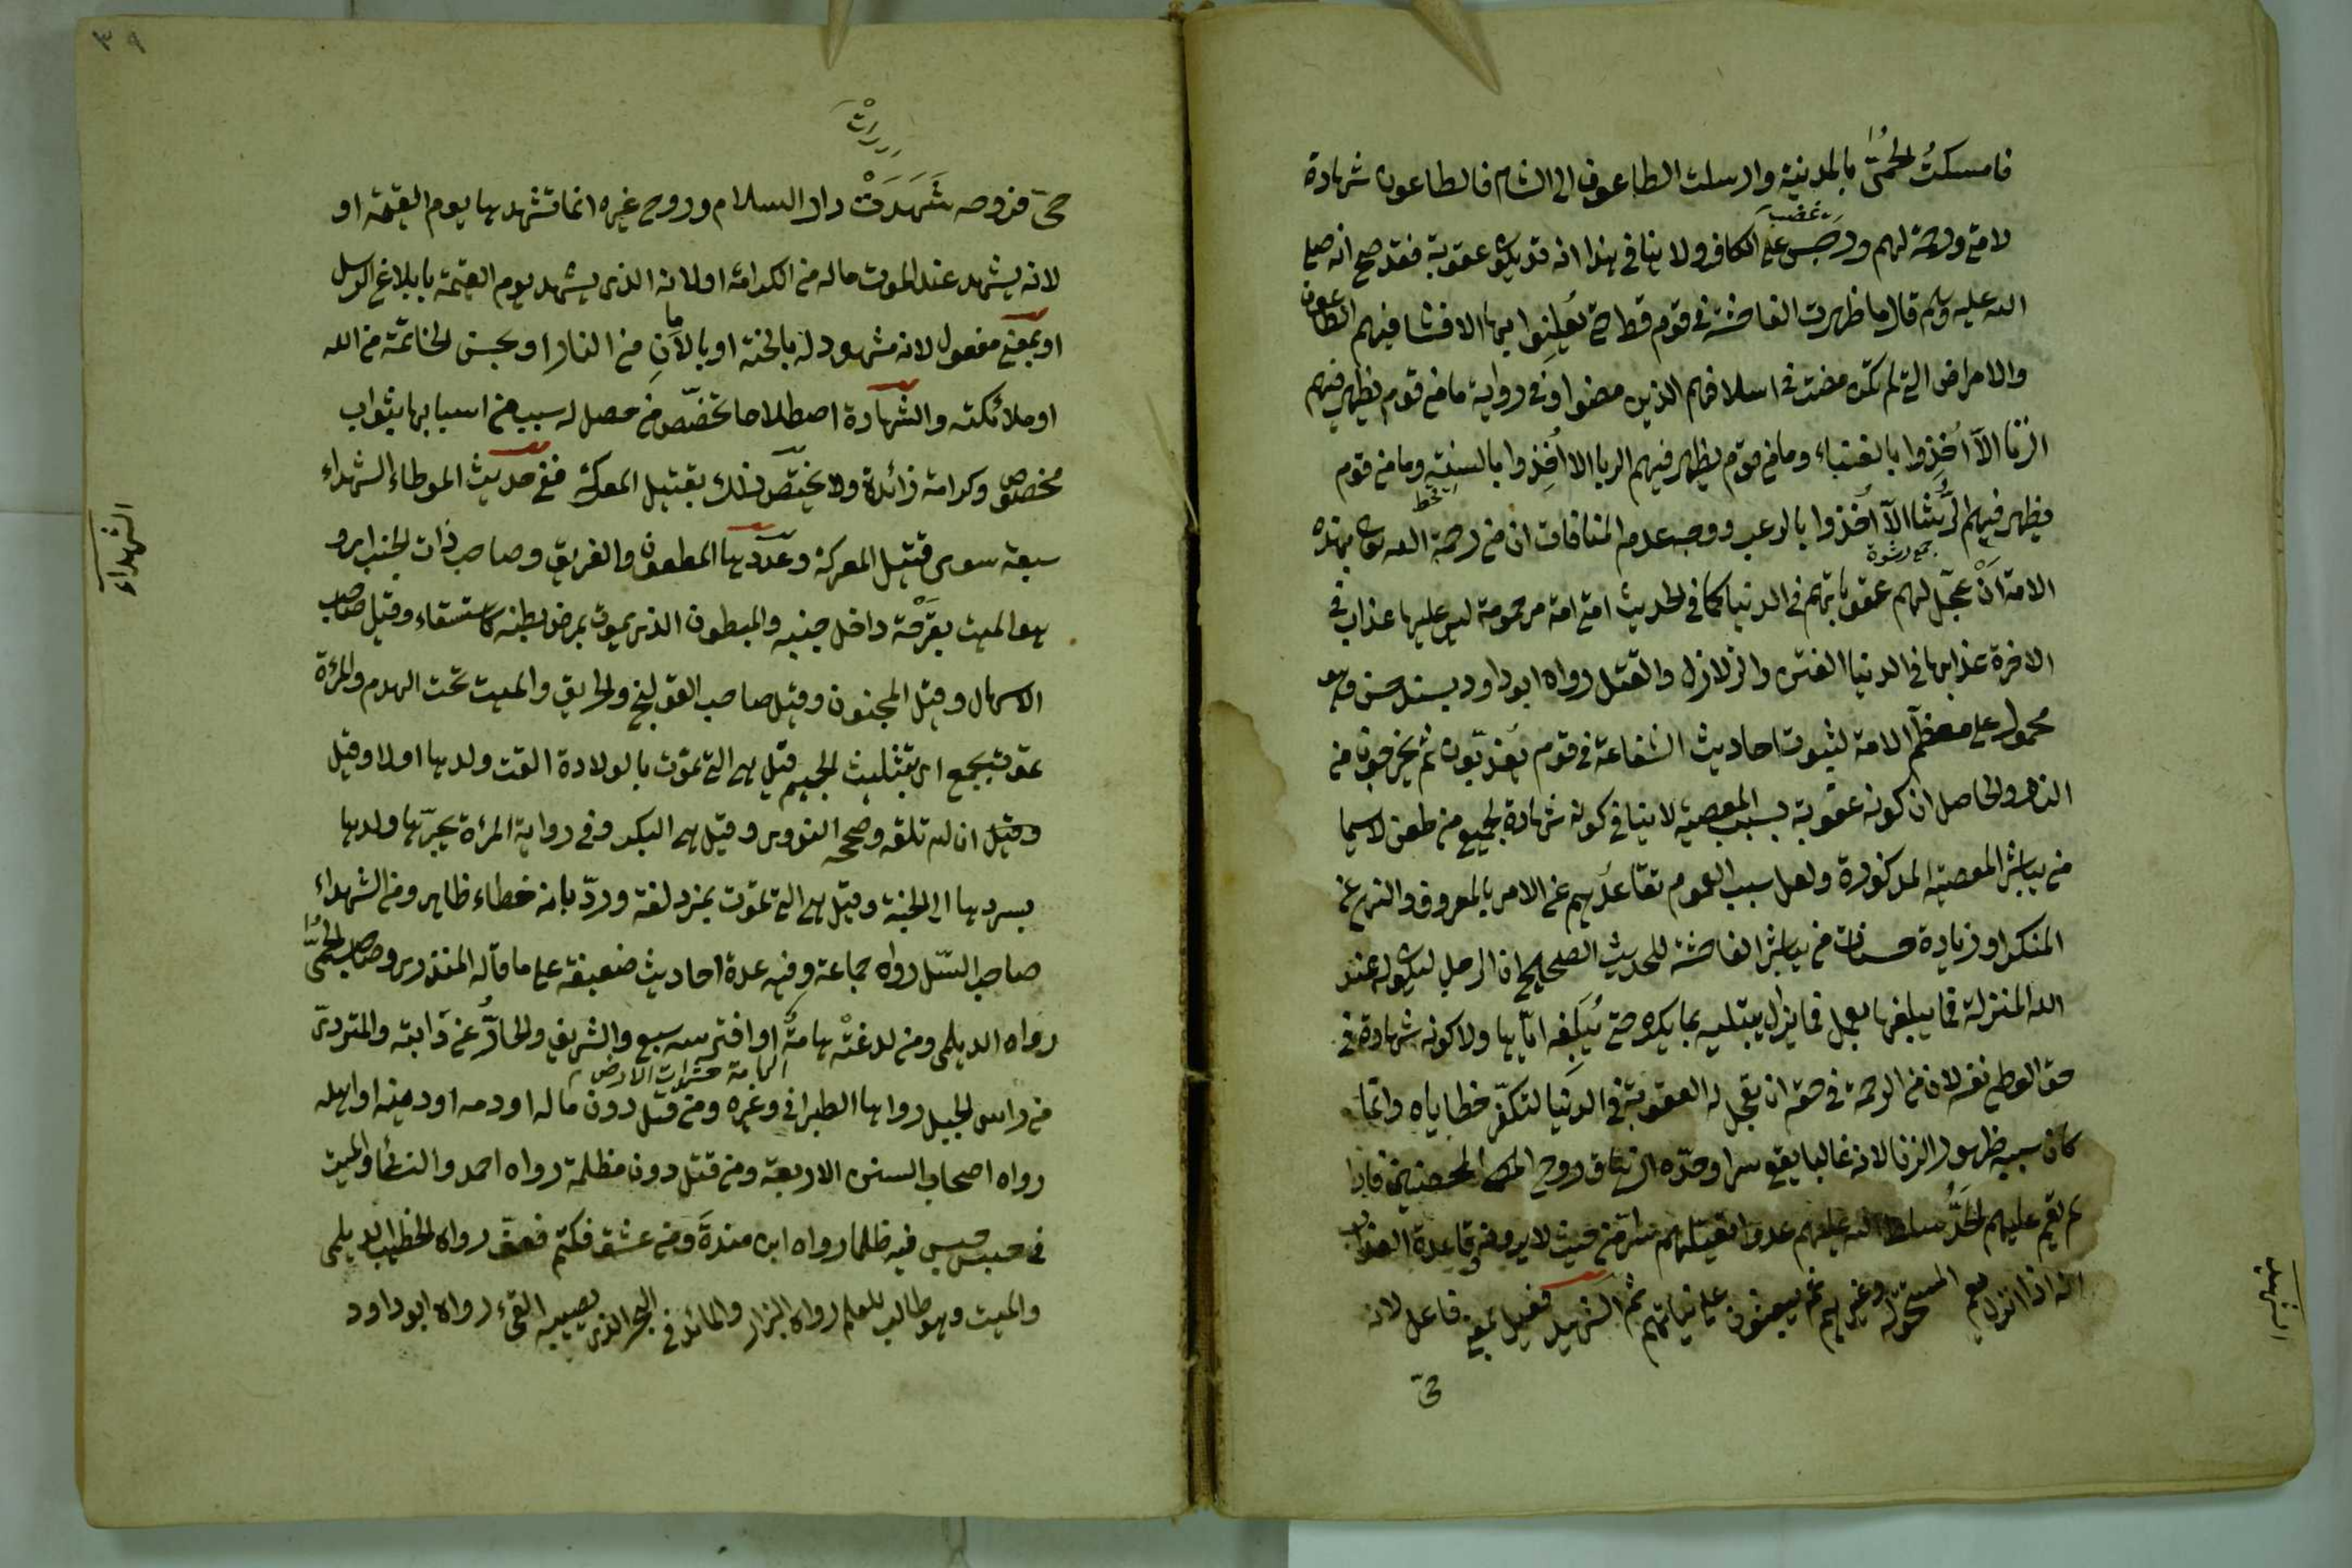 فامسكتُ الحُمّىٰ بالمدينة وارسلت الطاعون الى الشام فالطاعون شهادة
لامتى ورحمة لهم ورجس على الكافر ولا ينافى هذا انه قد يكون عقوبة فقد صح انه صلى
غضب
الله عليه وسلم قال ما ظهرت الفاحشة فى قوم قط حتى يُعلِنوا بها الا فشا فيهم الطاعون
والامراض التى لم تكن مضت فى اسلافهم الذين مضوا وفى رواية ما من قوم يظهر فيهم
الزنا الّا اُخِذوا بالفناء وما من قوم يظهر فيهم الربا الا اُخِذوا بالسنة وما من قوم
قحط
يظهر فيهم الرُّشا الّا اُخذوا بالرعب ووجه عدم المنافات ان من رحمة الله تعالى بهذه
جمع رشوة
الامة اَنْ عجّل لهم عقوباتهم فى الدنيا كما فى الحديث امتى امة مرحومة ليس عليها عذاب فى
الاخرة عذابها فى الدنيا الفتن والزلازل والقتل رواه ابو داود بسند حسن وهو
محمول على معظم الامة لثبوت احاديث الشفاعة فى قوم يُعذبّون ثم يخرجون من
النار والحاصل ان كونه عقوبة بسبب المعصية لا ينافى كونه شهادة لجميع من طعن لا سيما
من يباشر المعصية المذكورة ولعل سبب العموم تقاعدُهم عن الامر بالمعروف والنهى عن
المنكر او زيادة حسنات من يباشر الفاحشة للحديث الصحيح ان الرجل ليكون له عند
الله المنزلة فما يبلغها بعمل فما يزال يبتليه بما يكره حتى يُبلِّغه ايّاها ولا كونه شهادة فى
حق المطيع نفسه لان من الرحمة فى حقه ان تعجل له العقوبة فى الدنيا لتكفّر خطاياه وانما
كان سببه ظهور الزنا لانه غالبا يقع سرا وحدّه ازهاق روح المحصنين فاذا
لم يقم عليهم الحدُّ سلط الله عليهم عدوا يقتلهم سرا من حيث لا يرونه وقاعدة العذاب
انه اذا انزل يعم المستحق له وغيرهم ثم يبعثون على نياتهم ثم الشهيد فعيل بمعنى فاعل لانه
حىّ
الشهيد
٣٩
حىّ فروحه شَهِدَتْ دار السلام وروح غيره انما تشهدها يوم القيمة او
لانه يشهد عند الموت ماله من الكرامة او لانه الذى يشهد يوم القيمة بابلاغ الرسل
او بمعنى مفعول لانه مشهود له بالجنة او بالامان من النار او بحسن الخاتمة من الله
او ملائكته والشهادة اصطلاحا تخصّص من حصل له سبب من اسبابها بثواب
مخصوص وكرامة زائدة ولا يختصّ ذلك بقتيل المعركة ففى حديث الموطاء الشهداء
سبعة سوى قتيل المعركة وعدّدها المطعون والغريق وصاحب ذات الجنب اى و
هو الميت بقَرْحة داخل جنبه والمبطون الذى يموت بمرض بطنه كاستسقاء وقيل صاحب
الاسهال وقيل المجنون وقيل صاحب القولنج والحريق والميت تحت الهدم والمرأة
تموت بجمع اى بتثليث الجيم قيل هى التى تموت بالولادة القت ولدها اولا وقيل
وقيل ان لم تلقه وصححه النووى وقيل هى البكر وفى رواية المرأة يجرّها ولدها
بسررها الى الجنة وقيل هى التى تموت بمزدلفة وردّ بانه خطاء ظاهر ومن الشهداء
صاحب السّل رواه جماعة وفيه عدة احاديث ضعيفة على ما قاله المنذرى وصاحب الحُمّىٰ
رواه الديلمى ومن لدغتْه هامّةٌ او افترسه سبع والشريق والخارُّ عن دابته والمتردى
الهامة حشرات الارض
من راس الجبل رواها الطبرانى وغيره ومن قتل دون ماله او دمه او دينه او اهله
رواه اصحاب السنن الاربعة ومن قتل دون مظلمة رواه احمد والنسائى والميت
فى حبس حبس فيه ظلما رواه ابن مندة ومن عشق فكتم فعفّ رواه الخطيب الديلمى
والميت وهو طالب للعلم رواه البزار والمائد فى البحر الذى يصيبه القىء رواه ابو داود
الشهداء